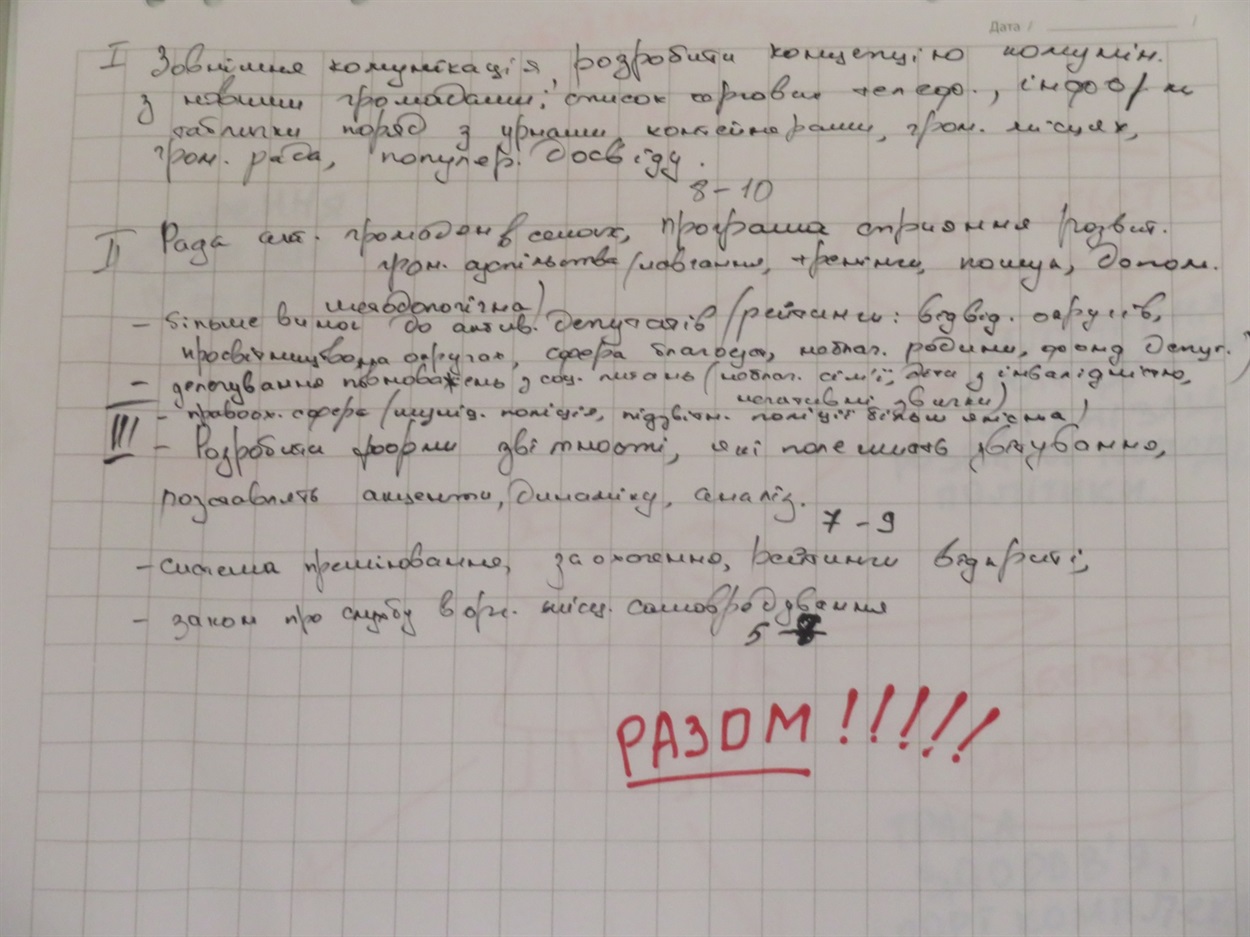 Дата /
I Зовнішня комунікація, розробити концепцію комунік.
з новими громадами; список торгових телефо., інформ
таблички поряд з урнами, контейнерами, гром. місцях,
гром. рада, популяр. досвіду.
8-10
II Рада громадян в селах, програма сприяння розвит.
гром. суспільства (навчання, тренінги, пошук, допом.
методологічна)
- більше вимог до актив. депутатів (рейтинги: відвід. округів,
просвітництво на округах, сфера благоуст, неблаг. родини, фонд депут.)
- делегування повноважень з соц. питань (неблаг. сім'ї, діти з інвалідністю,
негативні звички)
- правоох. сфера (муніц. поліція, підзвітн. поліції більш якісна)
III - Розробити форми звітності, які полегшать звітування,
розставлять акценти, динаміку, аналіз.
7-9
- система преміювання, заохочення, рейтинги відкриті,
- закон про службу в орг. місц. самоврядування
5 -
РАЗОМ!!!!!